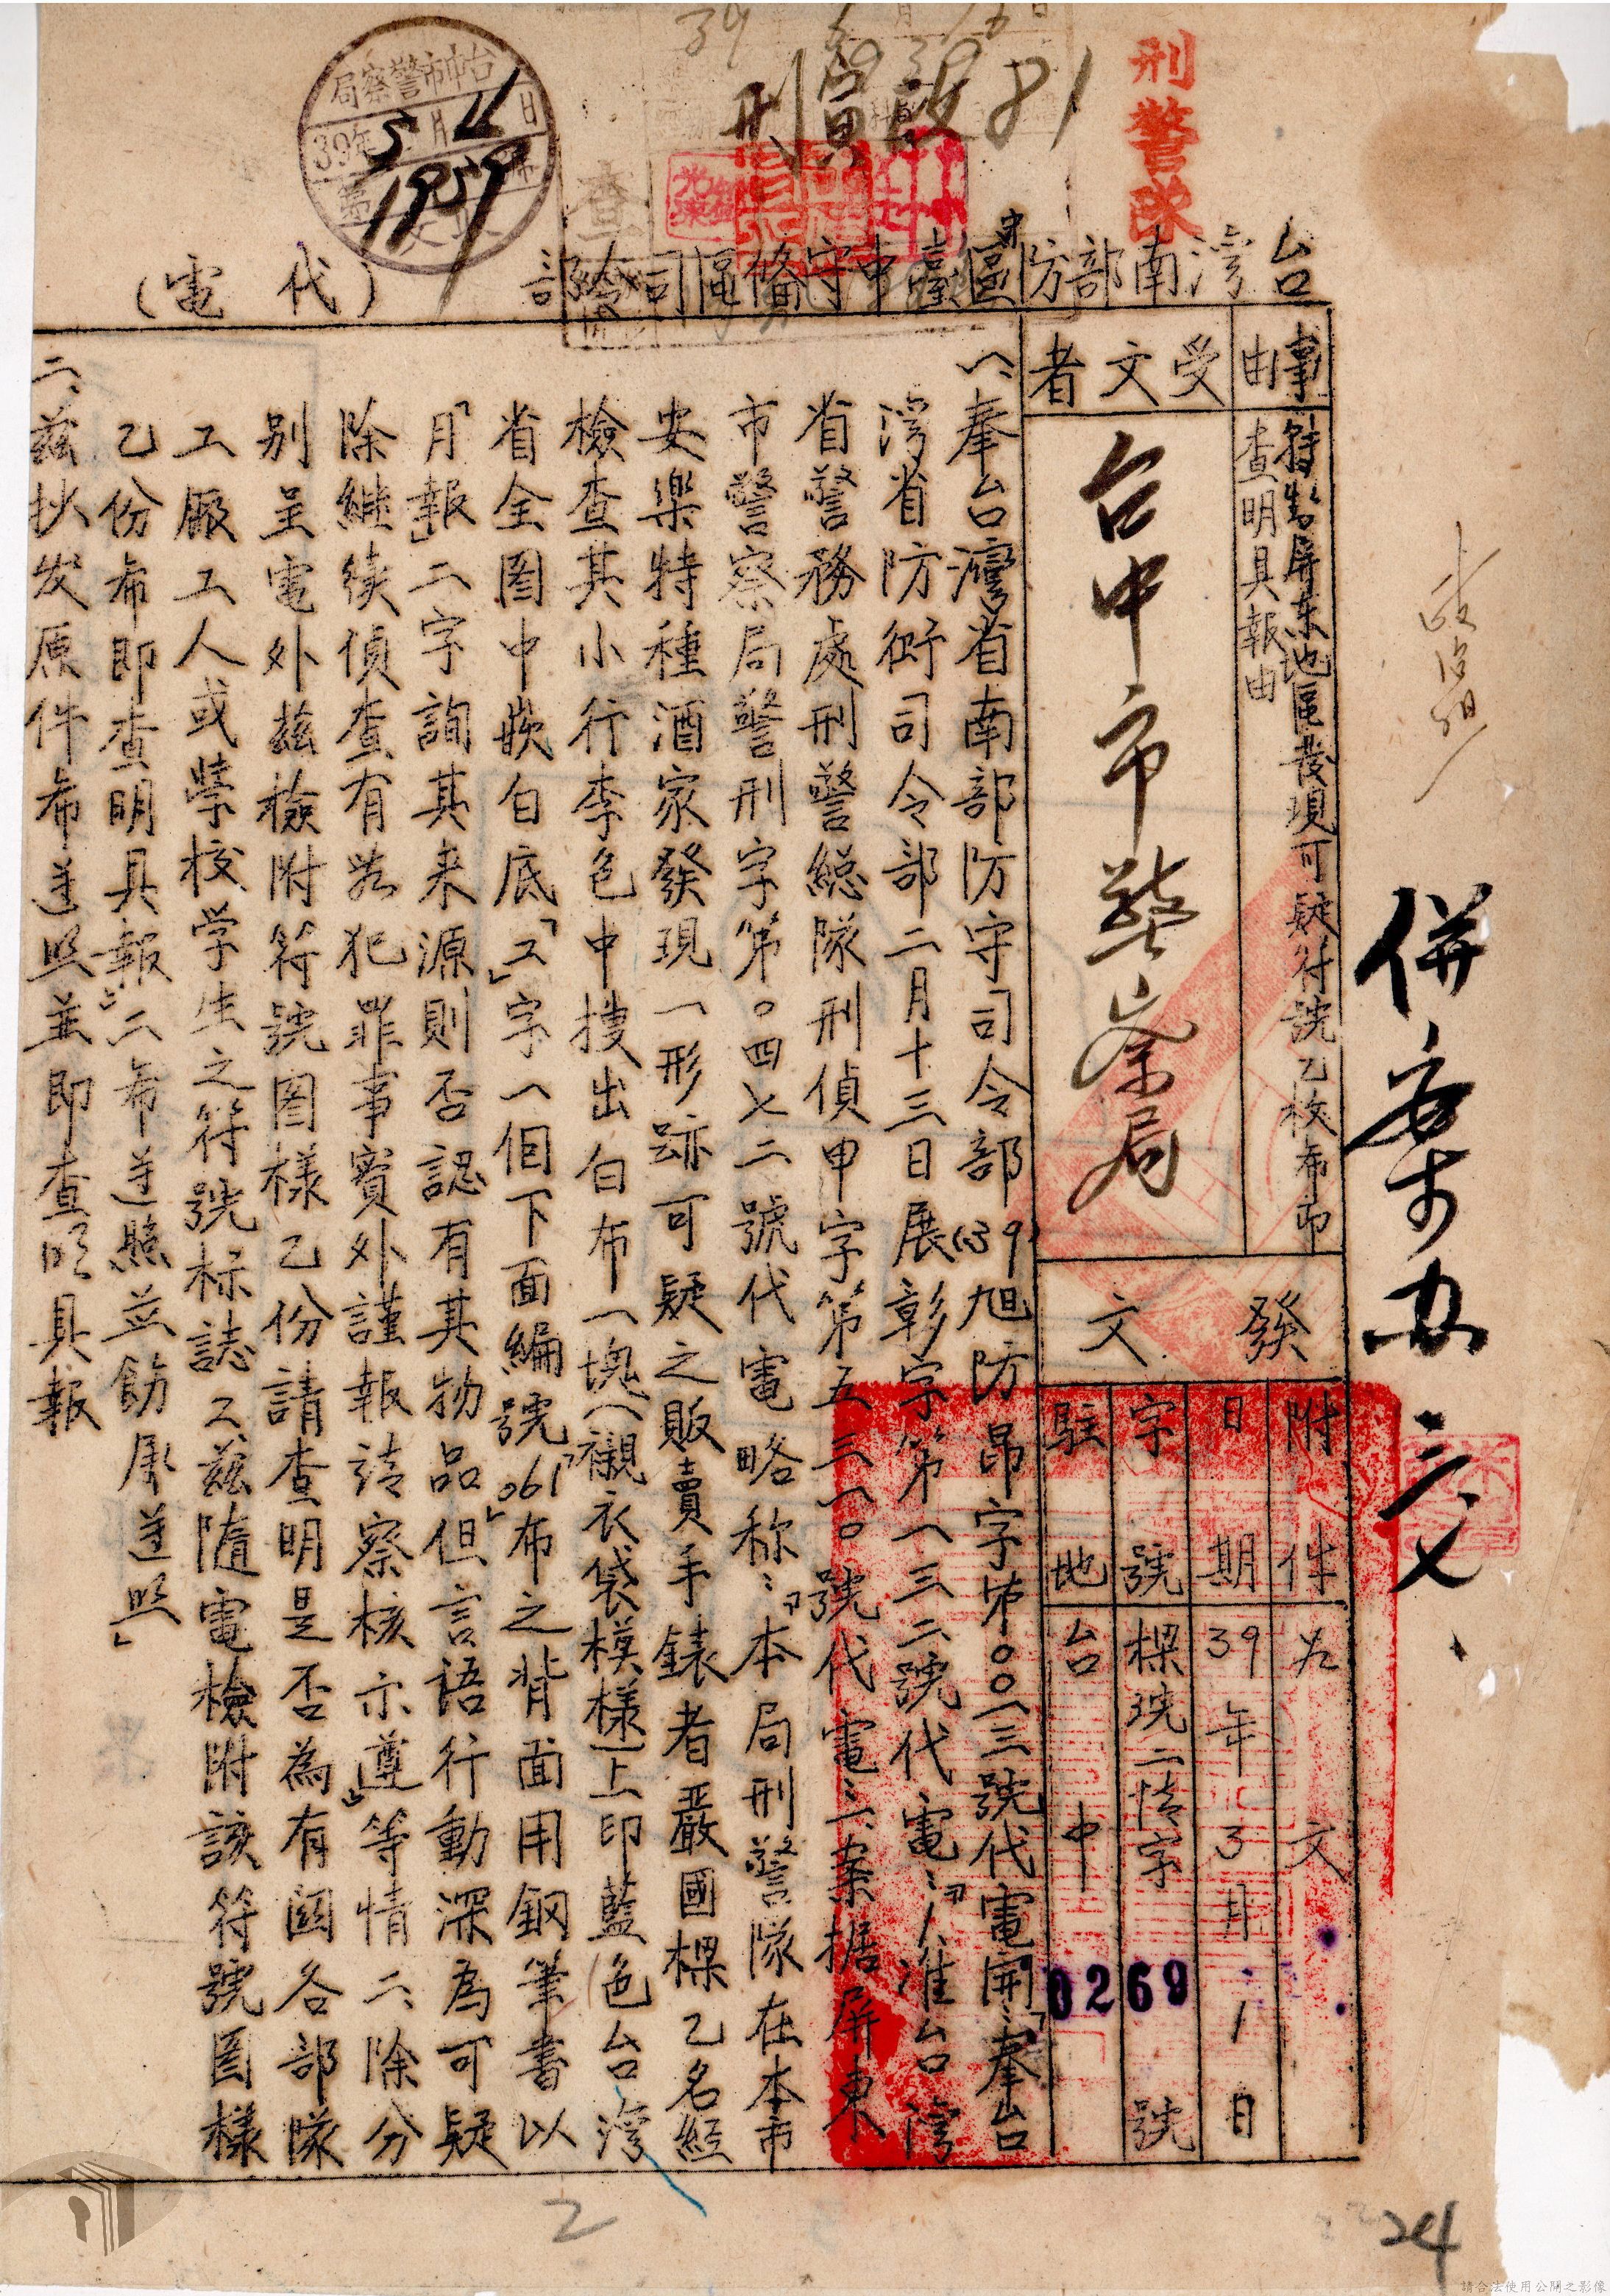 刑警隊
台灣南部防區臺中守備區司令部(代電)
台中市警察局
39年
事由
特出屏东地區發現可疑符號乙枚布即
查明具報由
受文者
台中市警察局
發文
附件
如文
日期
39年3月1日
字號
0269
號
駐地
台中
併案办
一、奉台灣省南部防守司令部(39)旭防昂字第〇〇一三號代電開:「奉台
灣省防衛司令部二月十三日展彰字第一三二號代電:「1.准台灣
省警務處刑警總隊刑偵甲字第五三一〇號代電:「一、案据屏東
市警察局警刑字第〇四七二號代電略称:「本局刑警隊在本市
安樂特種酒家發現一形跡可疑之販賣手錶者嚴國樑乙名經
檢查其小行李包中搜出白布一塊(襯衣袋模樣)上印藍色台灣
省全图中嵌白底「工」字一個下面編號「061」布之背面用鋼筆書以
「月報」二字詢其来源則否認有其物品」但言語行動深為可疑
除継续偵查有無犯罪事實外謹報請察核示遵」等情二、除分
别呈電外兹檢附符號图樣乙份請查明是否為有関各部隊
工厰工人或學校学生之符號标誌2.兹隨電檢附該符號图樣
乙份希即查明具報」二、希遵照並飭屬遵照」
二、兹抄发原件希遵照並即查明具報
2
24
請合法使用公開之影像